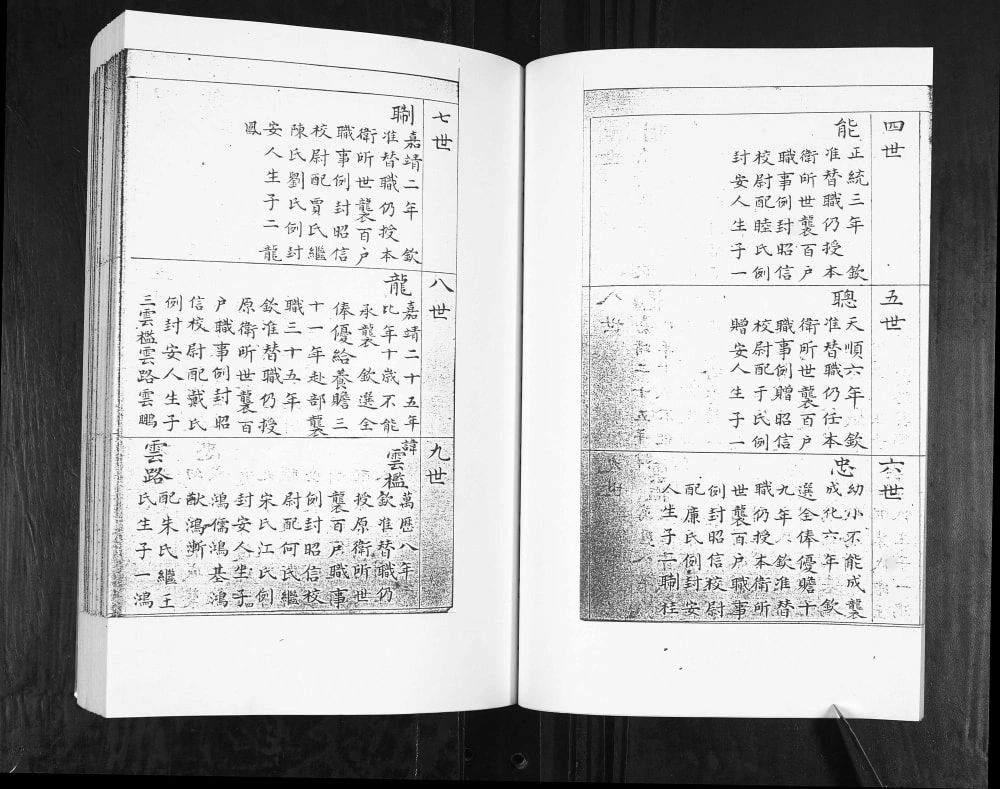 四世
能
正統三年　欽
准替職仍授本
衛所世襲百户
職事例封昭信
校尉配睦氏例
封安人生子一
五世
聰
天順六年　欽
准替職仍任本
衛所世襲百户
職事例贈昭信
校尉配于氏例
贈安人生子一
六世
忠
幼小不能成襲
成化六年　欽
選全俸優贍十
九年　欽准替
職仍授本衛所
世襲百户職事
例封昭信校尉
配康氏例封安
人生子二聯柱
七世
聯
嘉靖二年　欽
准替職仍授本
衛所世襲百户
職事例封昭信
校尉配賈氏繼
陳氏劉氏例封
安人生子二龍
鳳
八世
龍
嘉靖二十五年
比年十歳不能
承襲　欽選全
俸優給養贍三
十一年赴部襲
職三十五年
欽准替職仍授
原衛所世襲百
户職事例封昭
信校尉配戴氏
例封安人生子
三雲檻雲路雲鵬
九世
諱雲檻
萬歷八年
欽准替職仍
授原衛所世
襲百户職事
例封昭信校
尉配何氏繼
宋氏江氏例
封安人生子
鴻儒鴻基鴻
猷鴻漸
雲路
配朱氏繼王
氏生子一鴻